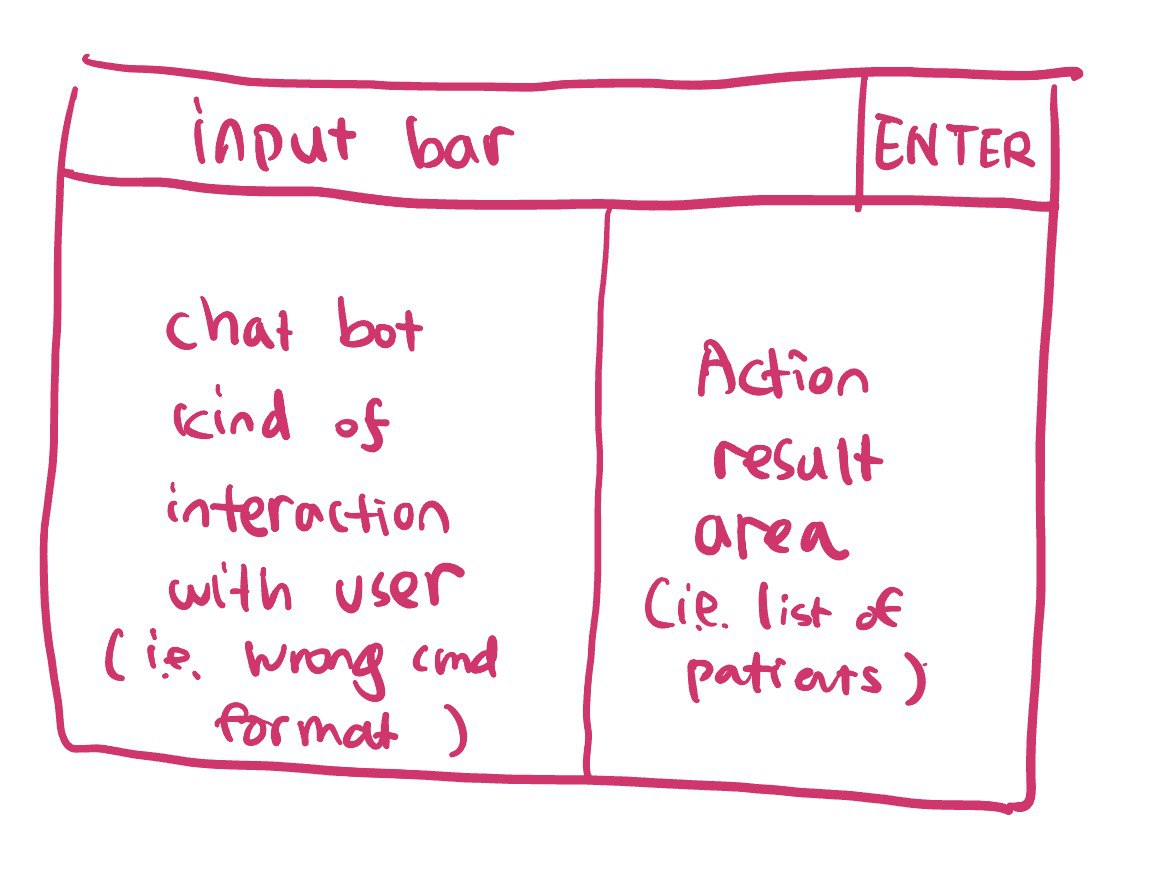 input bar
ENTER
chat bot
kind of
interaction
with user
(i.e. wrong cmd
format)
Action
result
area
(i.e. list of
patients)